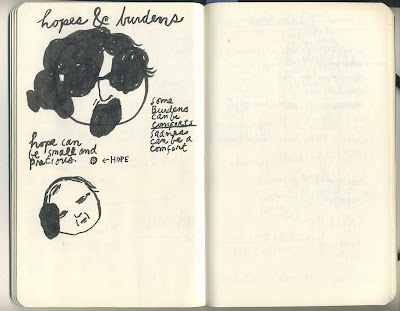 hopes & burdens
some
Burdens
can be
comforts
sadness
can be a
comfort
hope can
be small and
precious.
← HOPE